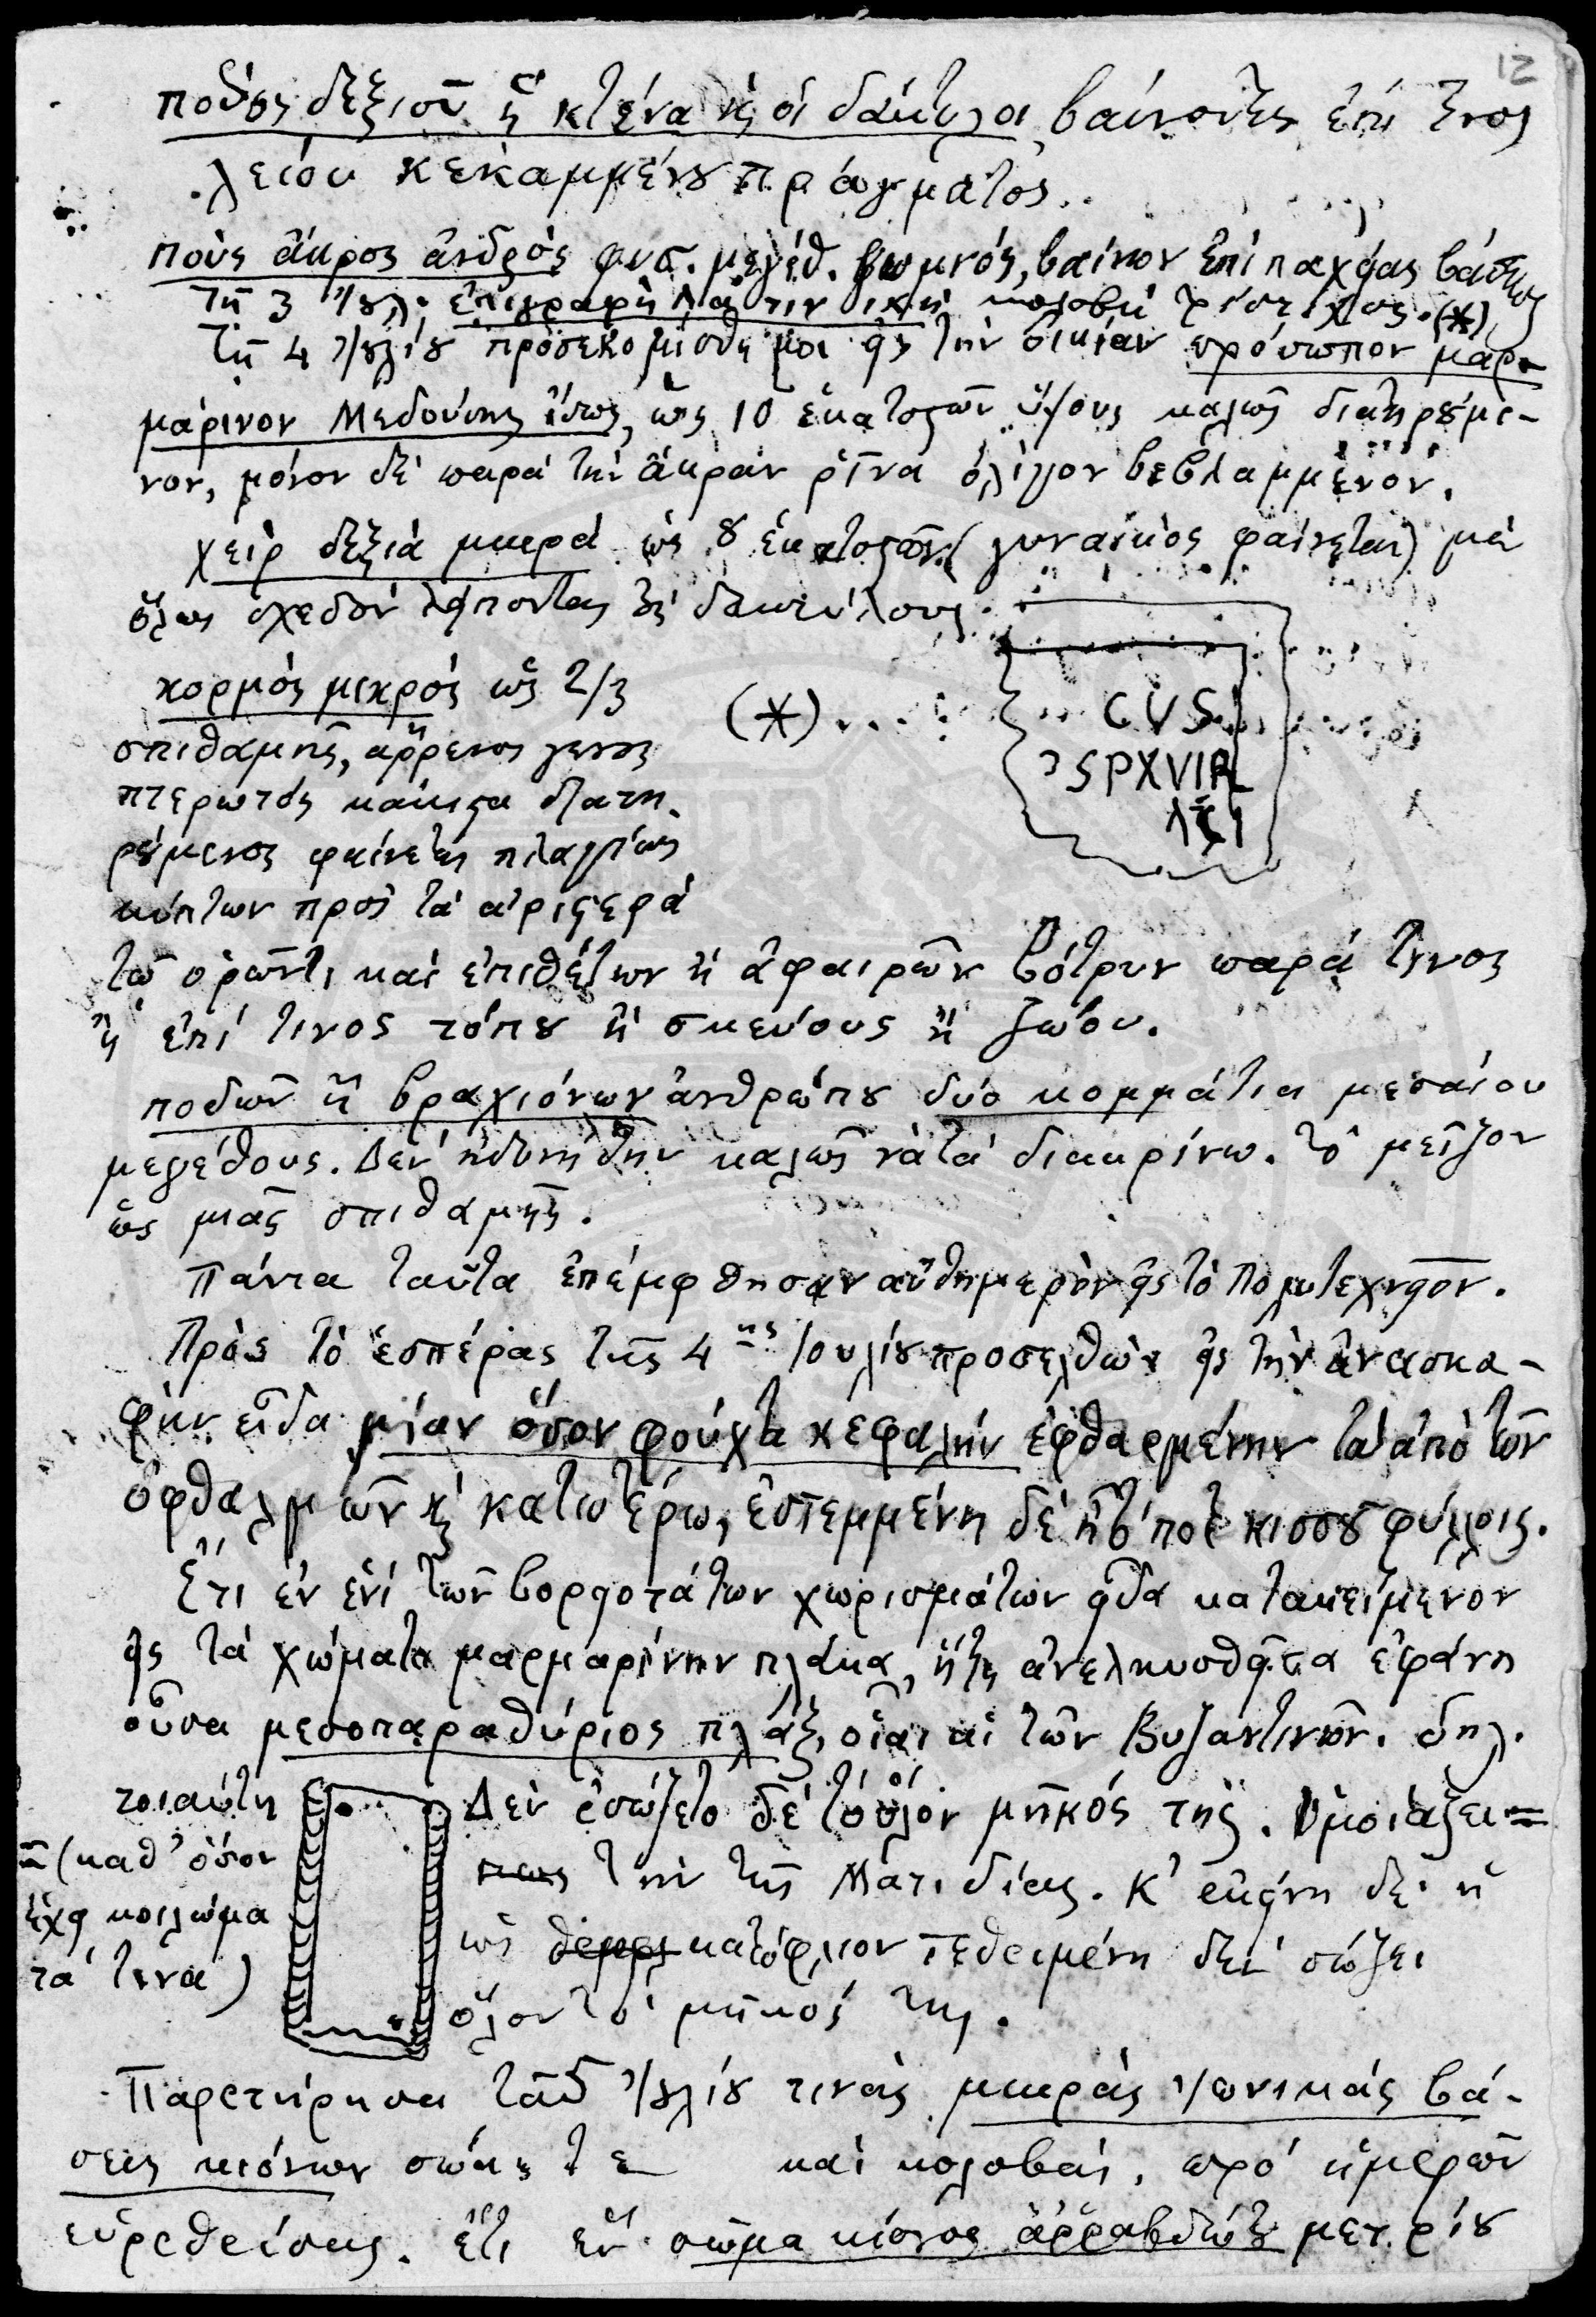 12
ποδὸς δεξιοῦ ἡ κτένα κ͵ οἱ δάκτυλοι βαίνοντες ἐπί τινος
λείου κεκαμμένου πράγματος.
ποὺς ἄκρος ἀνδρὸς φυσ. μεγέθ. βαῖνον ἐπὶ παχείας βάσεως
τῇ 3 Ἰουλ. ἐπιγραφὴ λατινικὴ κολοβὴ τρίστιχος. (*)
τῇ 4 Ἰουλίου προσεκομίσθη μοι εἰς τὴν οἰκίαν πρόσωπον μαρ-
μάρινον Μεδούσης ἴσως, ὡς 10 ἑκατοστῶν ὕψους καλῶς διατηρούμε-
νον, μόνον δὲ παρὰ τὴν ἄκραν ῥῖνα ὀλίγον βεβλαμμένον.
χεὶρ δεξιὰ μικρὰ ὡς 8 ἑκατοστῶν (γυναικὸς φαίνεται) μὲ
ὅλως σχεδὸν λείποντας τοὺς δακτύλους.
κορμὸς μικρὸς ὡς 2/3
σπιθαμῆς, ἄρρενος γένους
πτερωτὸς κάκιστα διατη-
ρούμενος φαίνεται πλαγίως
κύπτων πρὸς τὰ ἀριστερὰ
(*) ... CVS
SPXVIR
λξι
τῷ ὁρῶντι καὶ ἐπιθέτων ἢ ἀφαιρῶν βότρυν παρά τινος
ἢ ἐπί τινος τόπου ἢ σκεύους ἢ ζώου.
ποδῶν ἢ βραχιόνων ἀνθρώπου δύο κομμάτια μεσαίου
μεγέθους. Δὲν ἠδυνήθην καλῶς νὰ τὰ διακρίνω. τὸ μεῖζον
ὡς μιᾶς σπιθαμῆς.
Πάντα ταῦτα ἐπέμφθησαν αὐθημερὸν εἰς τὸ Πολυτεχνεῖον.
Πρὸς τὸ ἑσπέρας τῆς 4ης Ἰουλίου προσελθὼν εἰς τὴν ἀνασκα-
φὴν εἶδα μίαν ὅσον φούχτα κεφαλὴν ἐφθαρμένην τὰ ἀπὸ τῶν
ὀφθαλμῶν κ͵ κατωτέρω, ἐστεμμένη δὲ ἦτό ποτε κισσοῦ φύλλοις.
Ἔτι ἐν ἑνὶ τῶν βορειοτάτων χωρισμάτων εἶδα κατακείμενον
εἰς τὰ χώματα μαρμαρίνην πλάκα, ἥτις ἀνελκυσθεῖσα ἐφάνη
οὖσα μεσοπαραθύριος πλάξ, οἷαι αἱ τῶν Βυζαντινῶν. δηλ.
τοιαύτη
= (καθ' ὅσον
ἔχει κοιλώμα
τά τινα)
Δὲν ἐσώζετο δὲ τὸ ὅλον μῆκός της. Ὁμοιάζει =
πως τὴν τῆς Ματιδίας. Κ' ἐκείνη δὲ ἡ
ὡς κατώφλιον τεθειμένη δὲν σώζει
ὅλον τὸ μῆκός της.
Παρετήρησα Ἰουλίου τινὰς μικρὰς Ἰωνικὰς βά-
σεις κιόνων σώας τε καὶ κολοβάς, πρὸ ἡμερῶν
εὑρεθείσας. ἔτι ἓν σῶμα κίονος ἀρραβδώτου μετρίου